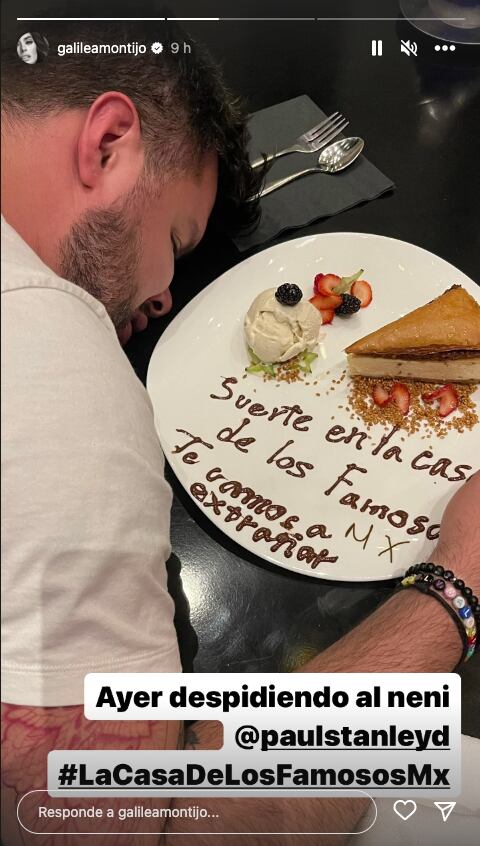 galileamontijo 9 h
Suerte en la casa
de los Famosos
Te vamos a MX
extrañar
Ayer despidiendo al neni
@paulstanleyd
#LaCasaDeLosFamososMx
Responde a galileamontijo...